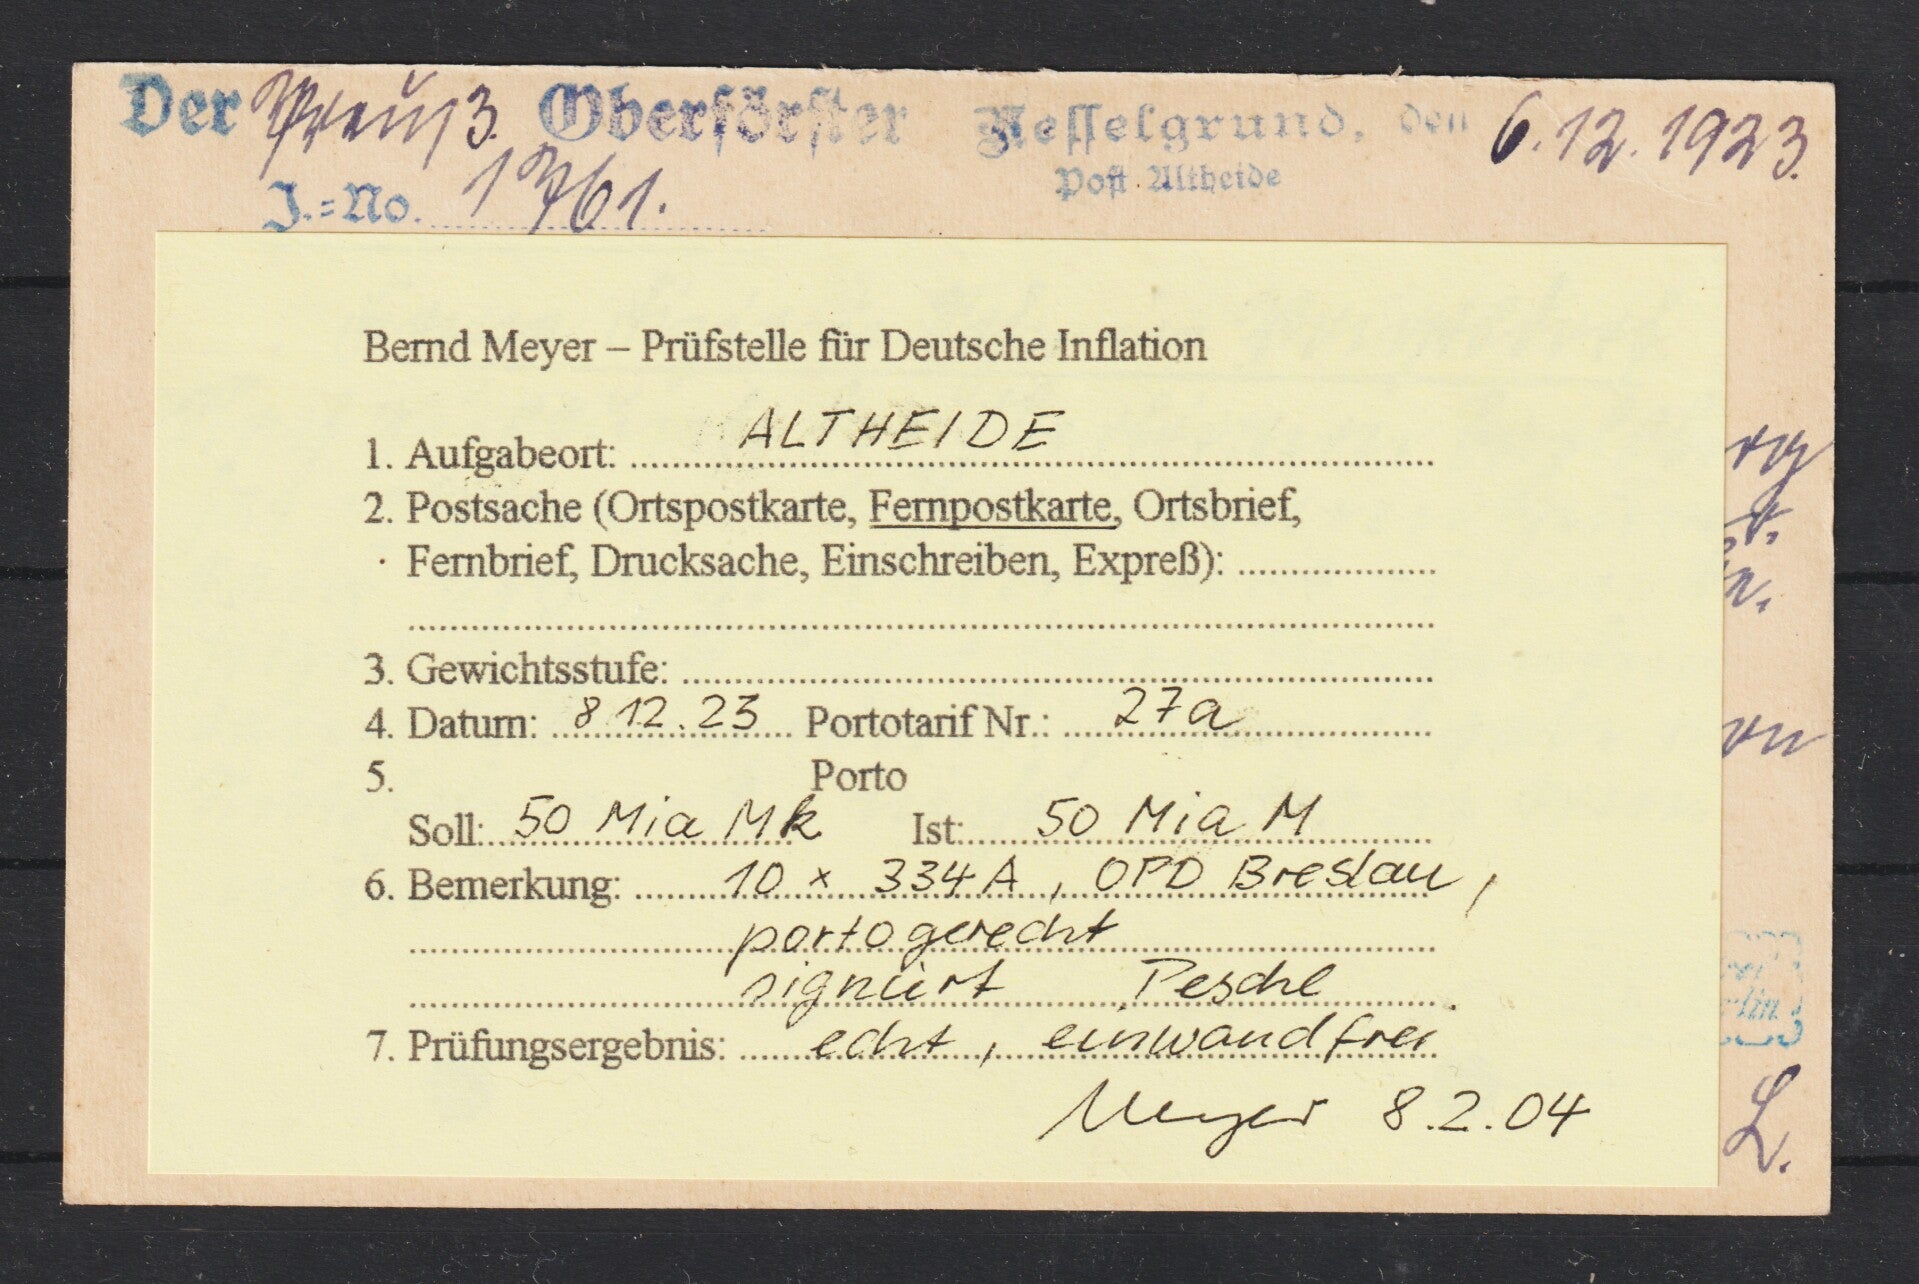 Der Preuß. Oberförster Nesselgrund, den 6.12.1923.
Post Altheide
J.=No. 1761.
Bernd Meyer – Prüfstelle für Deutsche Inflation
1. Aufgabeort: ALTHEIDE
2. Postsache (Ortspostkarte, Fernpostkarte, Ortsbrief,
Fernbrief, Drucksache, Einschreiben, Expreß):
3. Gewichtsstufe:
4. Datum: 8.12.23 Portotarif Nr.: 27a
5. Porto
Soll: 50 Mia Mk Ist: 50 Mia M
6. Bemerkung: 10 x 334A, OPD Breslau,
portogerecht
signiert Peschl
7. Prüfungsergebnis: echt, einwandfrei
Meyer 8.2.04
L.